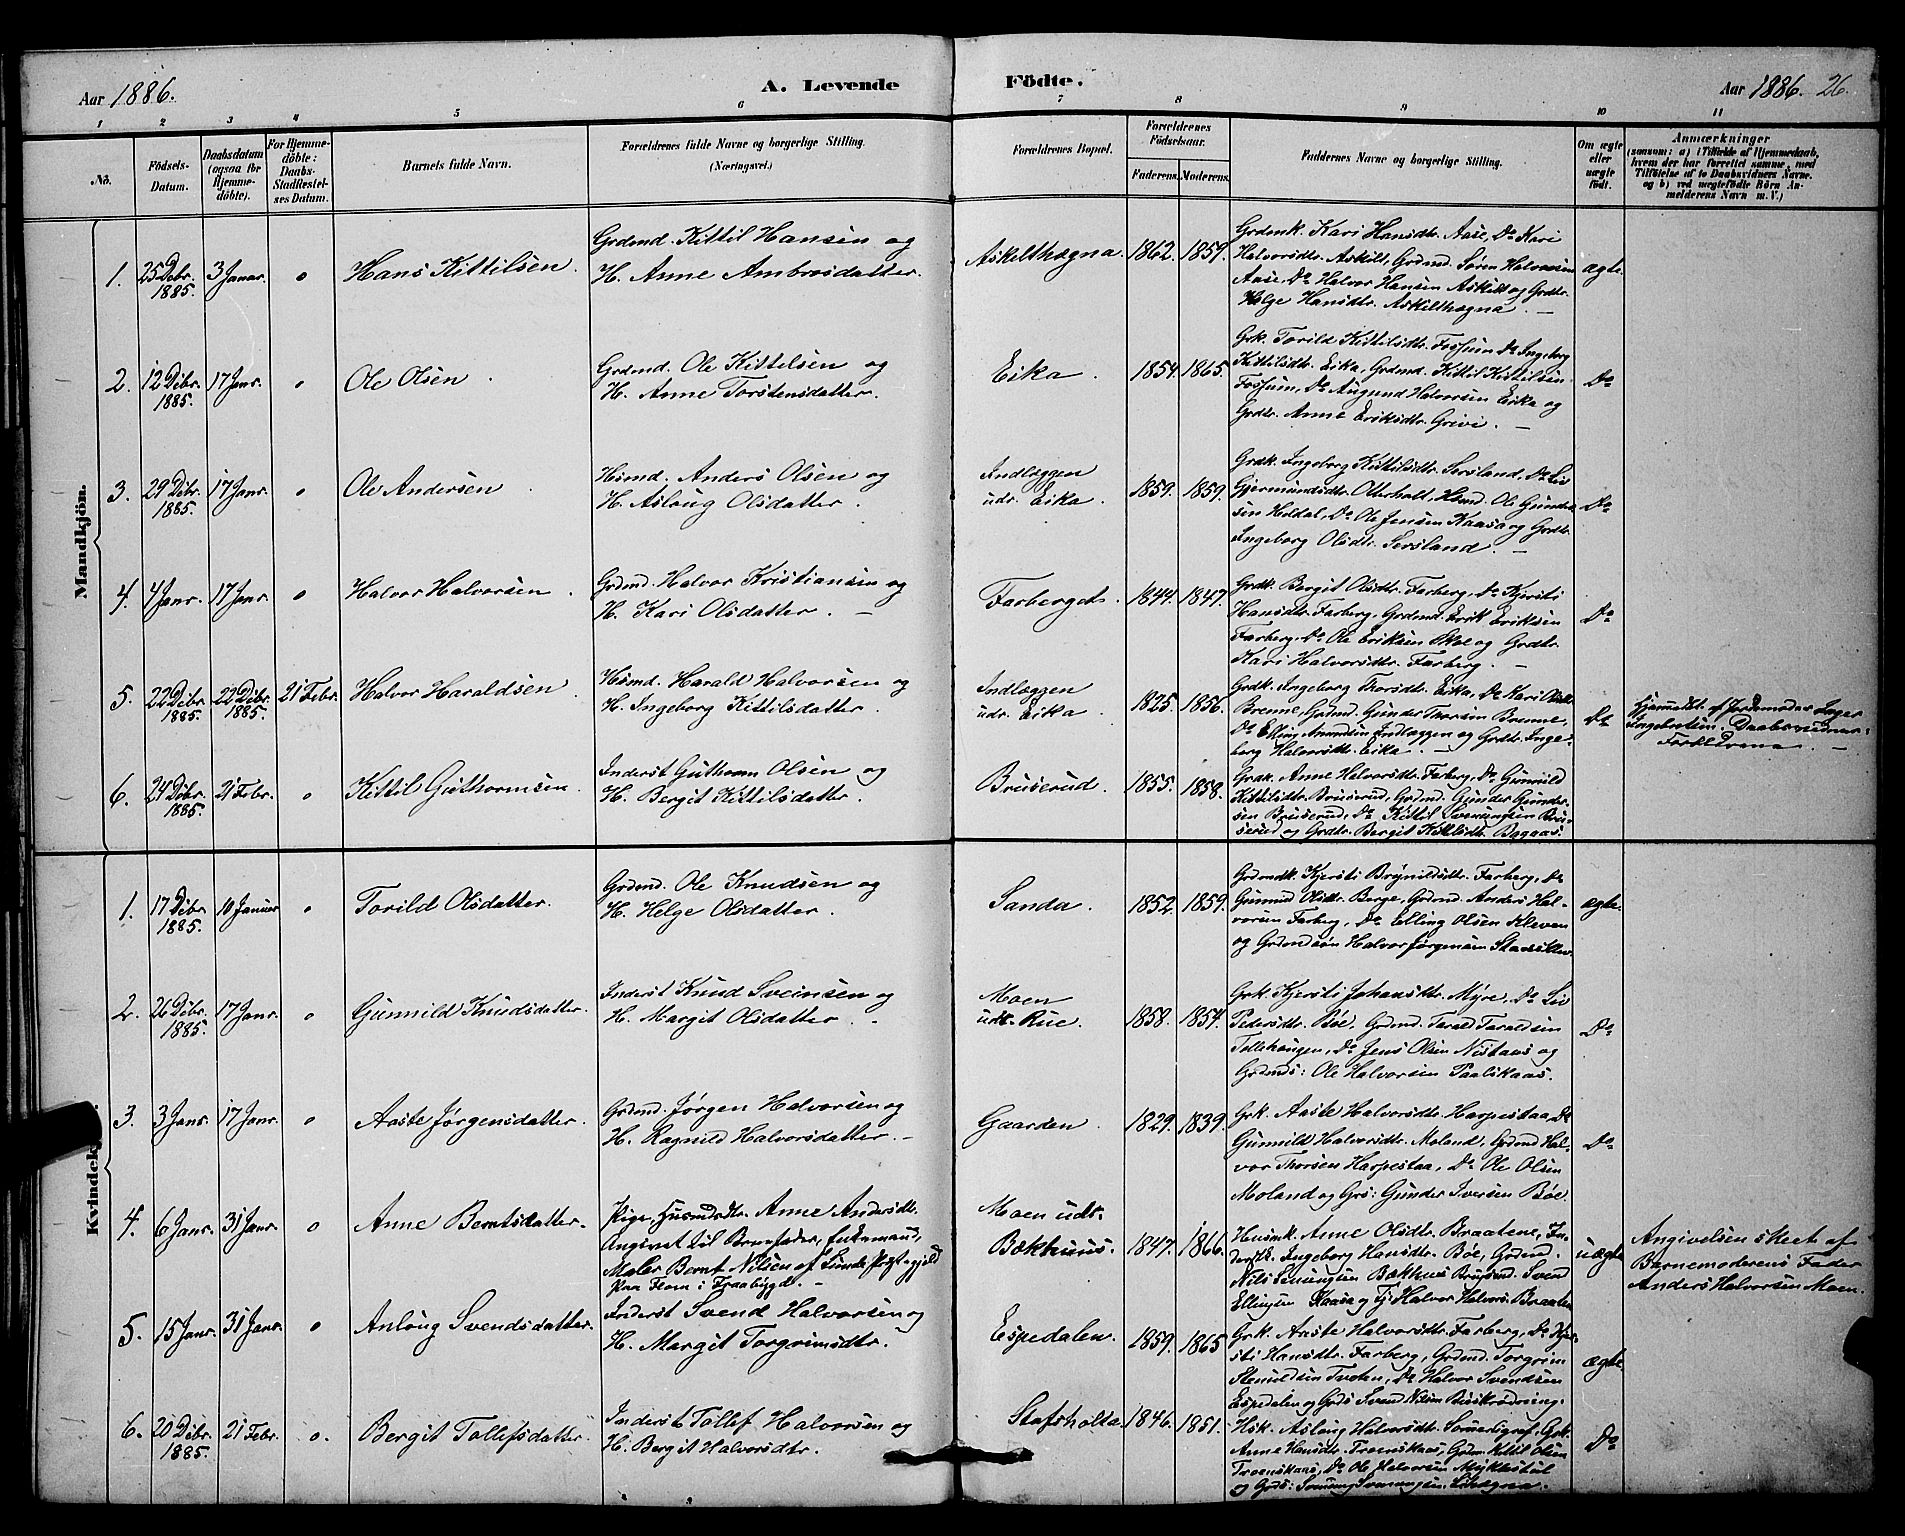 Aar 1886. A. Levende Födte. Aar 1886. 26.
1 2 3 4 5 6 7 8 9 10 11
No.
Födsels-Datum.
Daabsdatum (ogsaa for Hjemmedöbte).
For Hjemmedöbte: Daabs-Stadfæstelses Datum.
Barnets fulde Navn.
Forældrenes fulde Navne og borgerlige Stilling.
(Næringsvei.)
Forældrenes Bopæl.
Forældrenes Födselsaar.
Faderens. Moderens.
Faddernes Navne og borgerlige Stilling.
Om ægte eller uægte födt.
Anmærkninger
(saasom: a) i Tilfælde af Hjemmedaab,
hvem der har forrettet samme, med
Tilföielse af to Daabsvidners Navne.
og b) ved uægtefödte Börn An-
melderens Navn m. V.)
Mandkjön.
1. 25 Debr. 1885. 3 Januar. o Hans Kittilsen.
Grdmd. Kittil Hansen og
H. Anne Ambrosdatter.
Askelthægna 1862. 1859.
Grdmk. Kari Hansdtr. Aase, Do Kari
Halvorsdtr. Askilt, Grdmd. Søren Halvorsen
Aase, Do Halvor Hansen Askilt og Grdtr.
Helge Hansdtr. Askilthægna. —
ægte.
2. 12 Debr. 1885. 17 Janr. o Ole Olsen.
Grdmd. Ole Kittelsen og
H. Anne Torstensdatter.
Eika. 1854. 1865.
Grk. Torild Kittilsdtr. Fossum, Do Ingeborg
Kittilsdtr. Eika, Grdmd. Kittil Kittilsen
Fossum, Do Augund Halvorsen Eika og
Grdtr. Anne Eriksdtr. Grivi. —
Do
3. 29 Debr. 1885. 17 Janr. o Ole Andersen.
Hsmd. Anders Olsen og
H. Aslaug Olsdatter.
Indlæggen
udr. Eika. 1859. 1859.
Grdk. Ingeborg Kittilsdtr. Sersland, Do Lis
Gjermundsdtr. Otterholt, Hsmd. Ole Gunder-
sen Heldal, Do Ole Jensen Kaasa og Grdtr.
Ingeborg Olsdtr. Sersland. —
Do
4. 4 Janr. 17 Janr. o Halvor Halvorsen.
Grdmd. Halvor Kristiansen og
H. Kari Olsdatter. —
Farberget. 1844. 1847.
Grdk. Bergit Olsdtr. Farberg, Do Kjersti
Hansdtr. Farberg, Grdmd. Erik Eriksen
Farberg, Do Ole Eriksen Moe og Grdtr.
Kari Halvorsdtr. Farberg. —
Do
5. 22 Debr. 1885. 22 Debr. 1885. 21 Febr. Halvor Haraldsen.
Hsmd. Harald Halvorsen og
H. Ingeborg Kittilsdatter.
Indlæggen
udr. Eika. 1825. 1856.
Grdk. Ingeborg Thorsdtr. Eika, Do Kari Olsdtr.
Brenne, Grdmd. Gunder Thorsen Brenne,
Do Elling Amundsen Indlæggen og Grdtr. Inge-
borg Halvorsdtr. Eika. —
Do
Hjemmedbt. af Jordemoder Inger
Ingebretsen. Daabsvidner:
Forældrene. —
6. 24 Debr. 1885. 21 Febr. o Kittil Guthormsen.
Inderst Guthorm Olsen og
H. Bergit Kittilsdatter.
Bruserud. 1855. 1858.
Grdk. Anne Halvorsdtr. Farberg, Do Gunnild
Kittilsdtr. Bruserud, Grdmd. Gunder Gunder-
sen Bruserud, Do Kittil Sveinungsen Bru-
serud og Grdtr. Bergit Kittilsdtr. Bagaas.
Kvindek
1. 17 Debr. 1885. 10 Januar o Torild Olsdatter.
Grdmd. Ole Knudsen og
H. Helge Olsdatter.
Sanda. 1852. 1859.
Grdmdk. Kjersti Brynildsdtr. Farberg, Do
Gunnild Olsdtr. Berge, Grdmd. Anders Hal-
vorsen Farberg, Do Elling Olsen Kleven
og Grdmdsøn Halvor Jørgensen
ægte.
2. 26 Debr. 1885. 17 Janr. o Gunnild Knudsdatter.
Inderst Knud Sveinsen og
H. Margit Olsdatter. -
Moen
udr. Rue. 1858. 1854.
Grk. Kjersti Johansdtr. Myre, Do Lis
Pedersdtr. Bøe, Grdmd. Tarald Taraldsen
Tollehaugen, Do Jens Olsen Nistaus og
Grdmds: Ole Halvorsen Paalskaas.
Do
3. 3 Janr. 17 Janr. o Aaste Jørgensdatter.
Grdmd. Jørgen Halvorsen og
H. Ragnild Halvorsdatter. —
Gaarden. 1829. 1839.
Grk. Aaste Halvorsdtr. Harpestaa, Do
Gunnild Halvorsdtr. Moland, Grdmd Hal-
vor Thorsen Harpestaa, Do Ole Olsen
Moland og Grs: Gunder Iversen Bøe.
Do
4. 6 Janr. 31 Janr. o Anne Berntsdatter.
Pige, Husmdsdtr. Anne Andersdtr.
Angivet til Barnefader, Enkemand,
Maler Bernt Nilsen af Lunde Præstegjeld
paa Flom i Fraabygde. —
Moen udr.
Bækhuus. 1847. 1866.
Husmk. Anne Olsdtr. Braatene, In-
derstk. Ingeborg Hansdtr. Bøe, Grdmd.
Nils Bækhus Brugsmd. Svend
Ellingsen Kaasa og Tj: Halvor Halvors. Braaten
uægte
Angivelsen skeet af
Barnemoderens Fader
Anders Halvorsen Moen.
5. 15 Janr. 31 Janr. o Anlaug Svendsdatter.
Inderst Svend Halvorsen og
H. Margit Torgrimsdtr.
Espedalen. 1859. 1865
Grk. Aaste Halvorsdtr. Farberg, Do Kjer-
sti Hansdtr. Farberg, Grdmd. Torgrim
Stenuldsen Tveten, Do Halvor Svendsen
Espedalen og Grds Svend Nilsen
ægte
6. 20 Debr. 1885. 21 Febr. o. Bergit Tollefsdatter.
Inderst Tollef Halvorsen og
H. Bergit Halvorsdtr.
Stafsholta 1846. 1851.
Hsk. Aslaug Halvorsdtr. Grk.
Anne Hansdtr. Grdm. Kittil Olsen
Do Ole Halvorsen Myklestul
og Grds:
Do